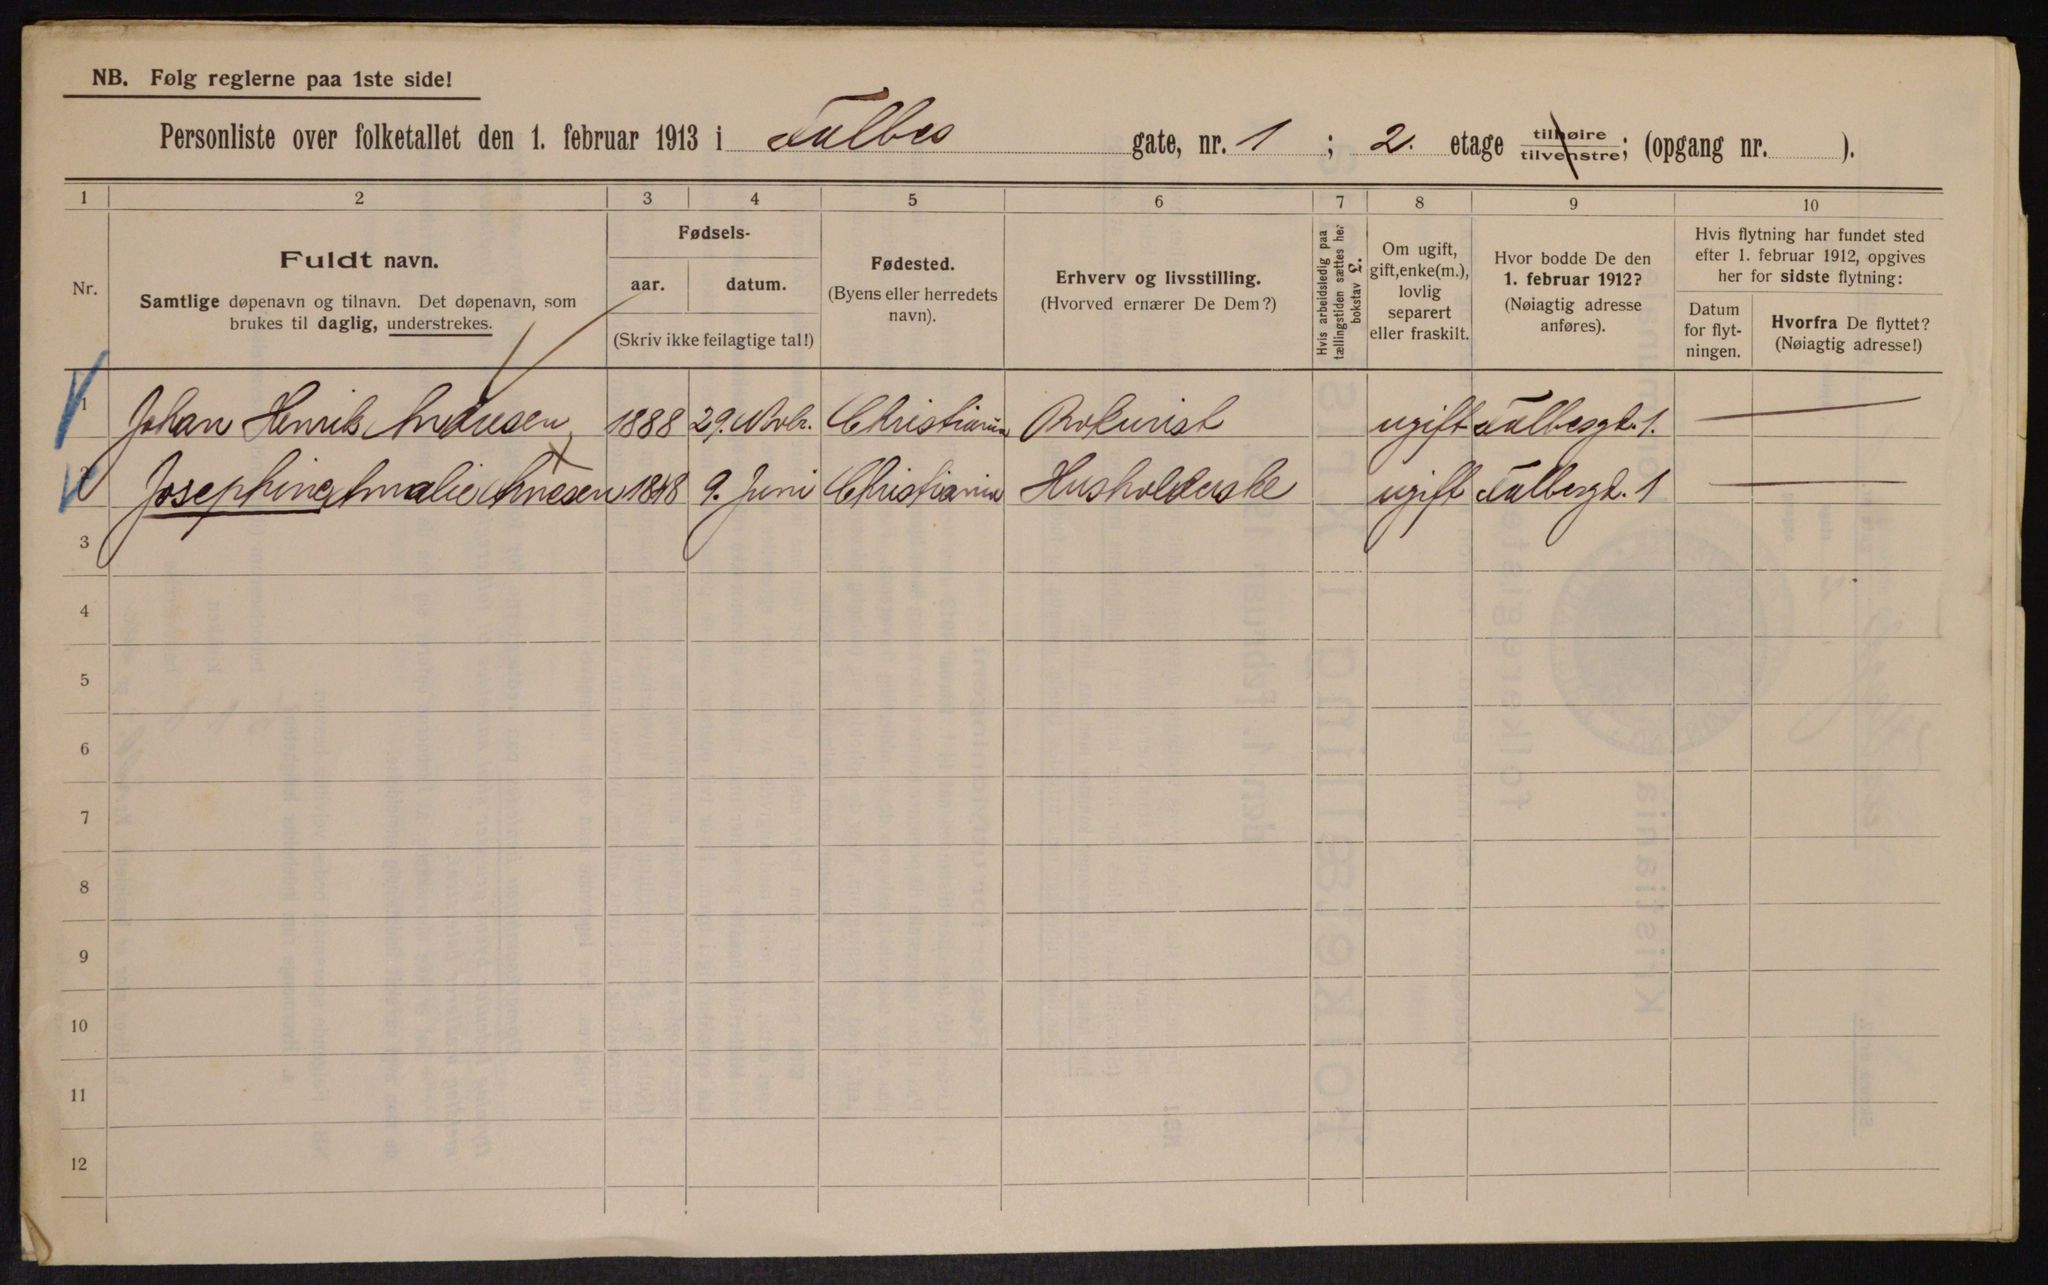 NB. Følg reglerne paa 1ste side!
Personliste over folketallet den 1. februar 1913 i Falbes gate, nr. 1 ; 2. etage tilhøire tilvenstre; (opgang nr. ).
1 2 3 4 5 6 7 8 9 10
Nr.
Fuldt navn.
Samtlige døpenavn og tilnavn. Det døpenavn, som
brukes til daglig, understrekes.
Fødsels-
aar. datum.
(Skriv ikke feilagtige tal!)
Fødested.
(Byens eller herredets
navn).
Erhverv og livsstilling.
(Hvorved ernærer De Dem?)
Hvis arbeidsledig paa
tællingstiden sættes her
bokstav £.
Om ugift,
gift, enke(m.),
lovlig
separert
eller fraskilt.
Hvor bodde De den
1. februar 1912?
(Nøiagtig adresse
anføres).
Hvis flytning har fundet sted
efter 1. februar 1912, opgives
her for sidste flytning:
Datum
for flyt-
ningen.
Hvorfra De flyttet?
(Nøiagtig adresse!)
1 Johan Henrik 1888 29. Novbr. Christiania Prokurist ugift Falbesgd. 1.
2 Josephine Amalie 1848 9. Juni Christiania Husholderske ugift Falbesgd. 1
3
4
5
6
7
8
9
10
11
12